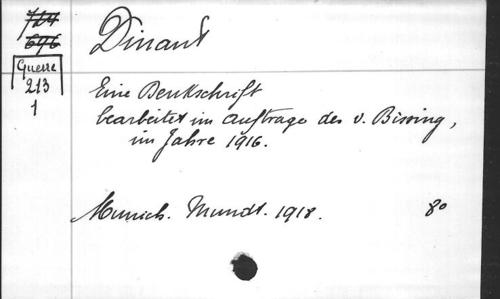 724
696
Guerre
213
1
Dinant
Eine Denkschrift
bearbeitet im Auftrage des v. Bissing,
im Jahre 1916.
Munich. Mundt. 1918. 8o